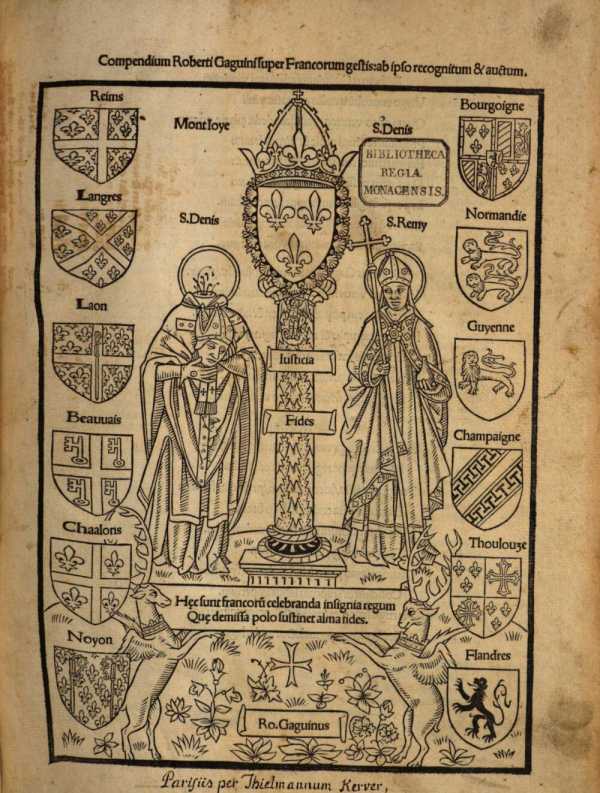 Compendium Roberti Gaguini super Francorum gestis: ab ipso recognitum & auctum.
Reims
MontIoye
S. Denis
Bourgoigne
BIBLIOTHECA
REGIA
MONACENSIS.
Langres
S. Denis
S. Remy
Normandie
Laon
Guyenne
Iusticia
Beauuais
Fides
Champaigne
Chaalons
Thoulouze
Hęc sunt francorū celebranda insignia regum
Quę demissa polo sustinet alma fides.
Noyon
Flandres
Ro. Gaguinus
Parisiis per Thielmannum Kerver,